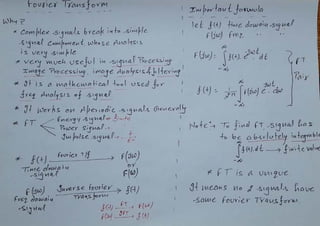 Fourier Transform
Why?
* Complex signals break into simple
signal component whose Analysis
is very simple
* very much useful in signal processing
Image Processing, image Analysis & filtering
* It is a mathematical tool used for
freq Analysis of signal
* It works on Aperiodic signals Generally
* FT Energy signal
Power signal
Impulse signal
* f(t) fourier T/f F(jω)
Time domain or
signal F(ω)
F(jω) Inverse fourier f(t)
Freq domain Transform
signal
f(t) FT F(ω)
F(ω) IFT f(t)
Important formula
let f(t) time domain signal
F(jω) freq. " "
F(jω) = ∫ f(t) e^-jωt dt
f(t) = 1/2π ∫ F(jω) e^jωt dω
FT
Pair
Note:- To find FT, signal has
to be absolutely integrable
∫ f(t) dt → finite value
* FT is a unique
It means no 2 signals have
same fourier Transform